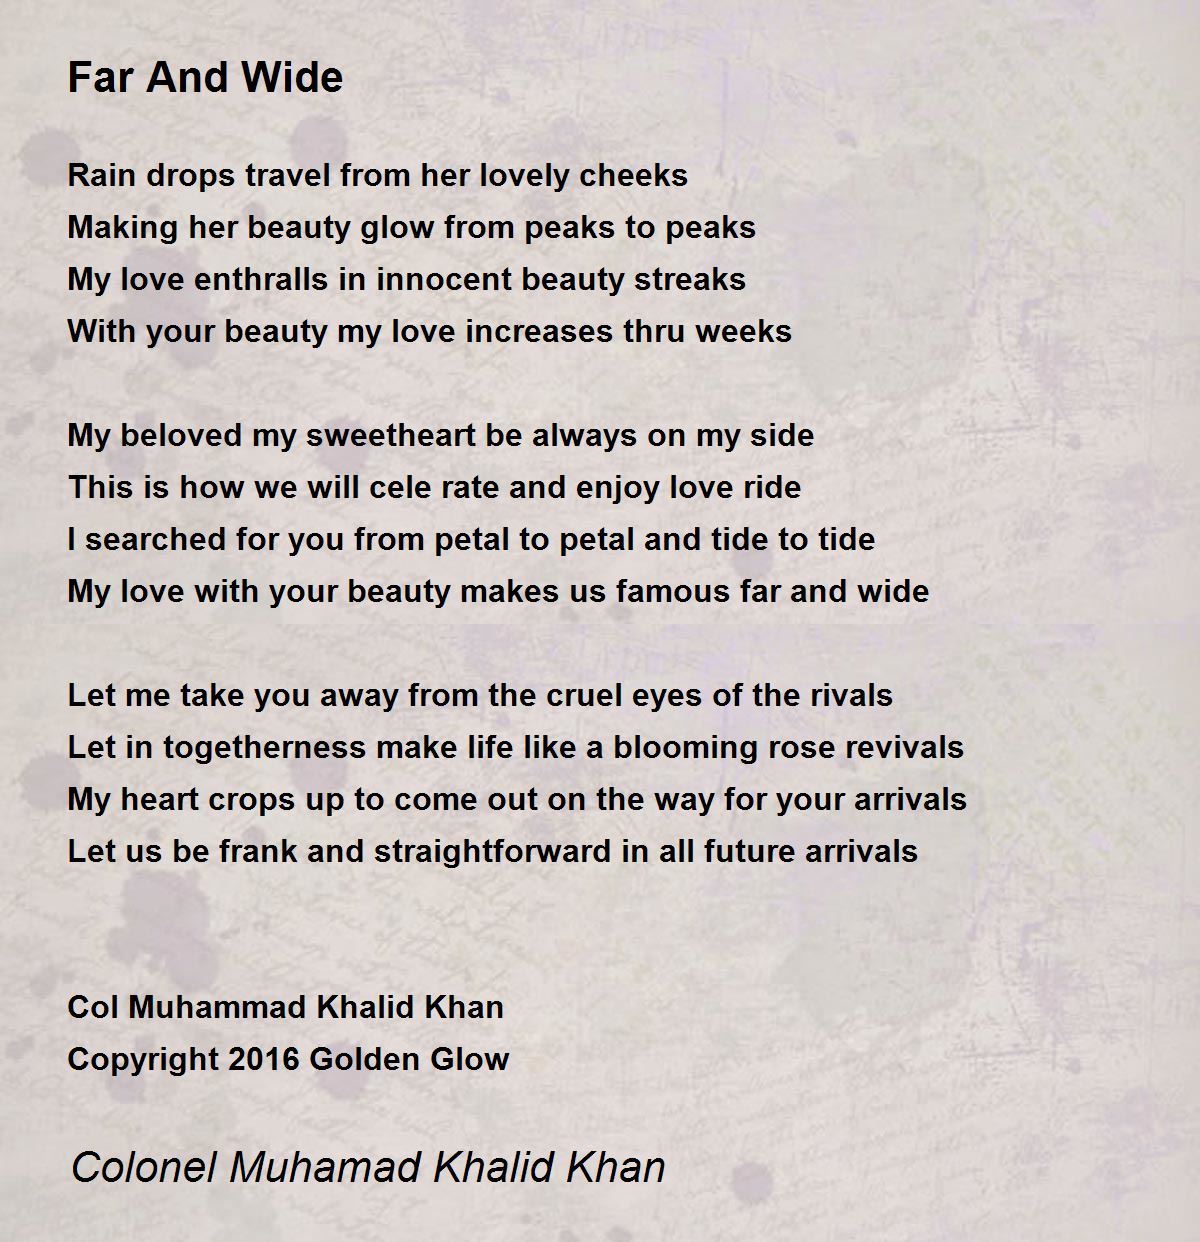 Far And Wide
Rain drops travel from her lovely cheeks
Making her beauty glow from peaks to peaks
My love enthralls in innocent beauty streaks
With your beauty my love increases thru weeks
My beloved my sweetheart be always on my side
This is how we will cele rate and enjoy love ride
I searched for you from petal to petal and tide to tide
My love with your beauty makes us famous far and wide
Let me take you away from the cruel eyes of the rivals
Let in togetherness make life like a blooming rose revivals
My heart crops up to come out on the way for your arrivals
Let us be frank and straightforward in all future arrivals
Col Muhammad Khalid Khan
Copyright 2016 Golden Glow
Colonel Muhamad Khalid Khan